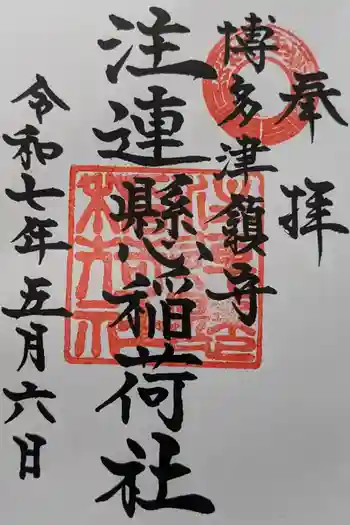 奉拝
博多津鎮守
注連懸稲荷社
令和七年五月六日